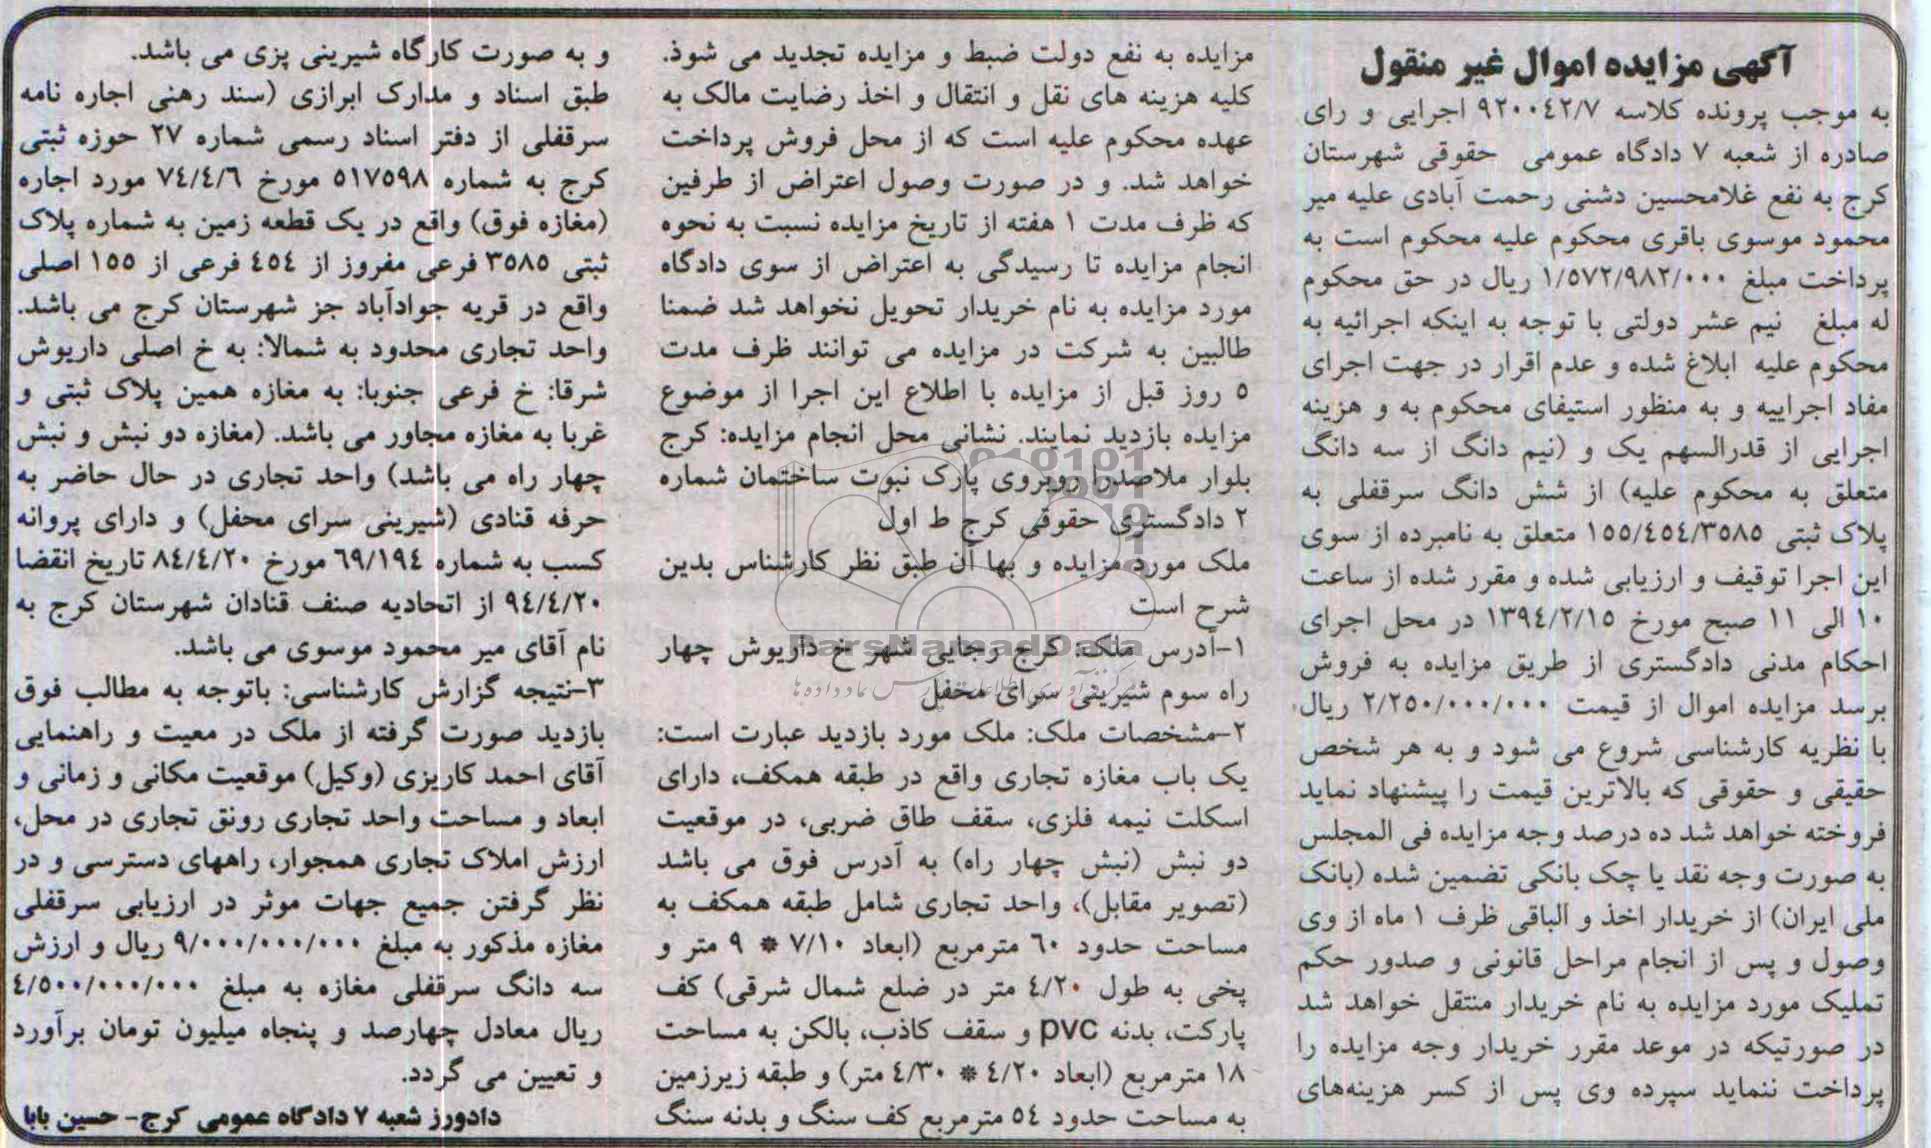 آگهی مزایده اموال غیر منقول
به موجب پرونده کلاسه ۹۲۰۰٤۲/۷ اجرایی و رای
صادره از شعبه ۷ دادگاه عمومی حقوقی شهرستان
کرج به نفع غلامحسین دشنی رحمت آبادی علیه میر
محمود موسوی باقری محکوم علیه محکوم است به
پرداخت مبلغ ۱/۵۷۲/۹۸۲/۰۰۰ ریال در حق محکوم
له مبلغ نیم عشر دولتی با توجه به اینکه اجرائیه به
محکوم علیه ابلاغ شده و عدم اقرار در جهت اجرای
مفاد اجراییه و به منظور استیفای محکوم به و هزینه
اجرایی از قدرالسهم یک و (نیم دانگ از سه دانگ
متعلق به محکوم علیه) از شش دانگ سرقفلی به
پلاک ثبتی ۱۵۵/٤۵٤/۳۵۸۵ متعلق به نامبرده از سوی
این اجرا توقیف و ارزیابی شده و مقرر شده از ساعت
۱۰ الی ۱۱ صبح مورخ ۱۳۹٤/۲/۱۵ در محل اجرای
احکام مدنی دادگستری از طریق مزایده به فروش
برسد مزایده اموال از قیمت ۲/۲۵۰/۰۰۰/۰۰۰ ریال
با نظریه کارشناسی شروع می شود و به هر شخص
حقیقی و حقوقی که بالاترین قیمت را پیشنهاد نماید
فروخته خواهد شد ده درصد وجه مزایده فی المجلس
به صورت وجه نقد یا چک بانکی تضمین شده (بانک
ملی ایران) از خریدار اخذ و الباقی ظرف ۱ ماه از وی
وصول و پس از انجام مراحل قانونی و صدور حکم
تملیک مورد مزایده به نام خریدار منتقل خواهد شد
در صورتیکه در موعد مقرر خریدار وجه مزایده را
پرداخت ننماید سپرده وی پس از کسر هزینه‌های
مزایده به نفع دولت ضبط و مزایده تجدید می شوذ.
کلیه هزینه های نقل و انتقال و اخذ رضایت مالک به
عهده محکوم علیه است که از محل فروش پرداخت
خواهد شد. و در صورت وصول اعتراض از طرفین
که ظرف مدت ۱ هفته از تاریخ مزایده نسبت به نحوه
انجام مزایده تا رسیدگی به اعتراض از سوی دادگاه
مورد مزایده به نام خریدار تحویل نخواهد شد ضمنا
طالبین به شرکت در مزایده می توانند ظرف مدت
۵ روز قبل از مزایده با اطلاع این اجرا از موضوع
مزایده بازدید نمایند. نشانی محل انجام مزایده: کرج
بلوار ملاصدرا روبروی پارک نبوت ساختمان شماره
۲ دادگستری حقوقی کرج ط اول
ملک مورد مزایده و بها آن طبق نظر کارشناس بدین
شرح است
۱-آدرس ملک: کرج رجایی شهر خ داریوش چهار
راه سوم شیرینی سرای محفل
۲-مشخصات ملک: ملک مورد بازدید عبارت است:
یک باب مغازه تجاری واقع در طبقه همکف، دارای
اسکلت نیمه فلزی، سقف طاق ضربی، در موقعیت
دو نبش (نبش چهار راه) به آدرس فوق می باشد
(تصویر مقابل)، واحد تجاری شامل طبقه همکف به
مساحت حدود ۶۰ مترمربع (ابعاد ۷/۱۰ * ۹ متر و
پخی به طول ٤/۲۰ متر در ضلع شمال شرقی) کف
پارکت، بدنه pvc و سقف کاذب، بالکن به مساحت
۱۸ مترمربع (ابعاد ٤/۲۰ * ٤/۳۰ متر) و طبقه زیرزمین
به مساحت حدود ۵٤ مترمربع کف سنگ و بدنه سنگ
و به صورت کارگاه شیرینی پزی می باشد.
طبق اسناد و مدارک ابرازی (سند رهنی اجاره نامه
سرقفلی از دفتر اسناد رسمی شماره ۲۷ حوزه ثبتی
کرج به شماره ۵۱۷۵۹۸ مورخ ۷٤/٤/۶ مورد اجاره
(مغازه فوق) واقع در یک قطعه زمین به شماره پلاک
ثبتی ۳۵۸۵ فرعی مفروز از ٤۵٤ فرعی از ۱۵۵ اصلی
واقع در قریه جوادآباد جز شهرستان کرج می باشد.
واحد تجاری محدود به شمالا: به خ اصلی داریوش
شرقا: خ فرعی جنوبا: به مغازه همین پلاک ثبتی و
غربا به مغازه مجاور می باشد. (مغازه دو نبش و نبش
چهار راه می باشد) واحد تجاری در حال حاضر به
حرفه قنادی (شیرینی سرای محفل) و دارای پروانه
کسب به شماره ۶۹/۱۹٤ مورخ ۸٤/٤/۲۰ تاریخ انقضا
۹٤/٤/۲۰ از اتحادیه صنف قنادان شهرستان کرج به
نام آقای میر محمود موسوی می باشد.
۳-نتیجه گزارش کارشناسی: باتوجه به مطالب فوق
بازدید صورت گرفته از ملک در معیت و راهنمایی
آقای احمد کاریزی (وکیل) موقعیت مکانی و زمانی و
ابعاد و مساحت واحد تجاری رونق تجاری در محل،
ارزش املاک تجاری همجوار، راههای دسترسی و در
نظر گرفتن جمیع جهات موثر در ارزیابی سرقفلی
مغازه مذکور به مبلغ ۹/۰۰۰/۰۰۰/۰۰۰ ریال و ارزش
سه دانگ سرقفلی مغازه به مبلغ ٤/۵۰۰/۰۰۰/۰۰۰
ریال معادل چهارصد و پنجاه میلیون تومان برآورد
و تعیین می گردد.
دادورز شعبه ۷ دادگاه عمومی کرج- حسین بابا
ParsNamadData